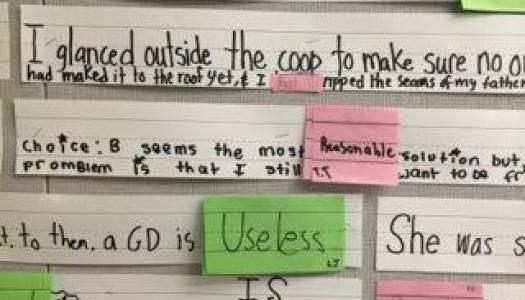 I glanced outside the coop to make sure no
had made it to the roof yet, & I ripped the seams of my father
choice: B seems the most Reasonable solution but
promblem is that I still want to be
T.T
to then, a GD is Useless
LJ
She was s
IS